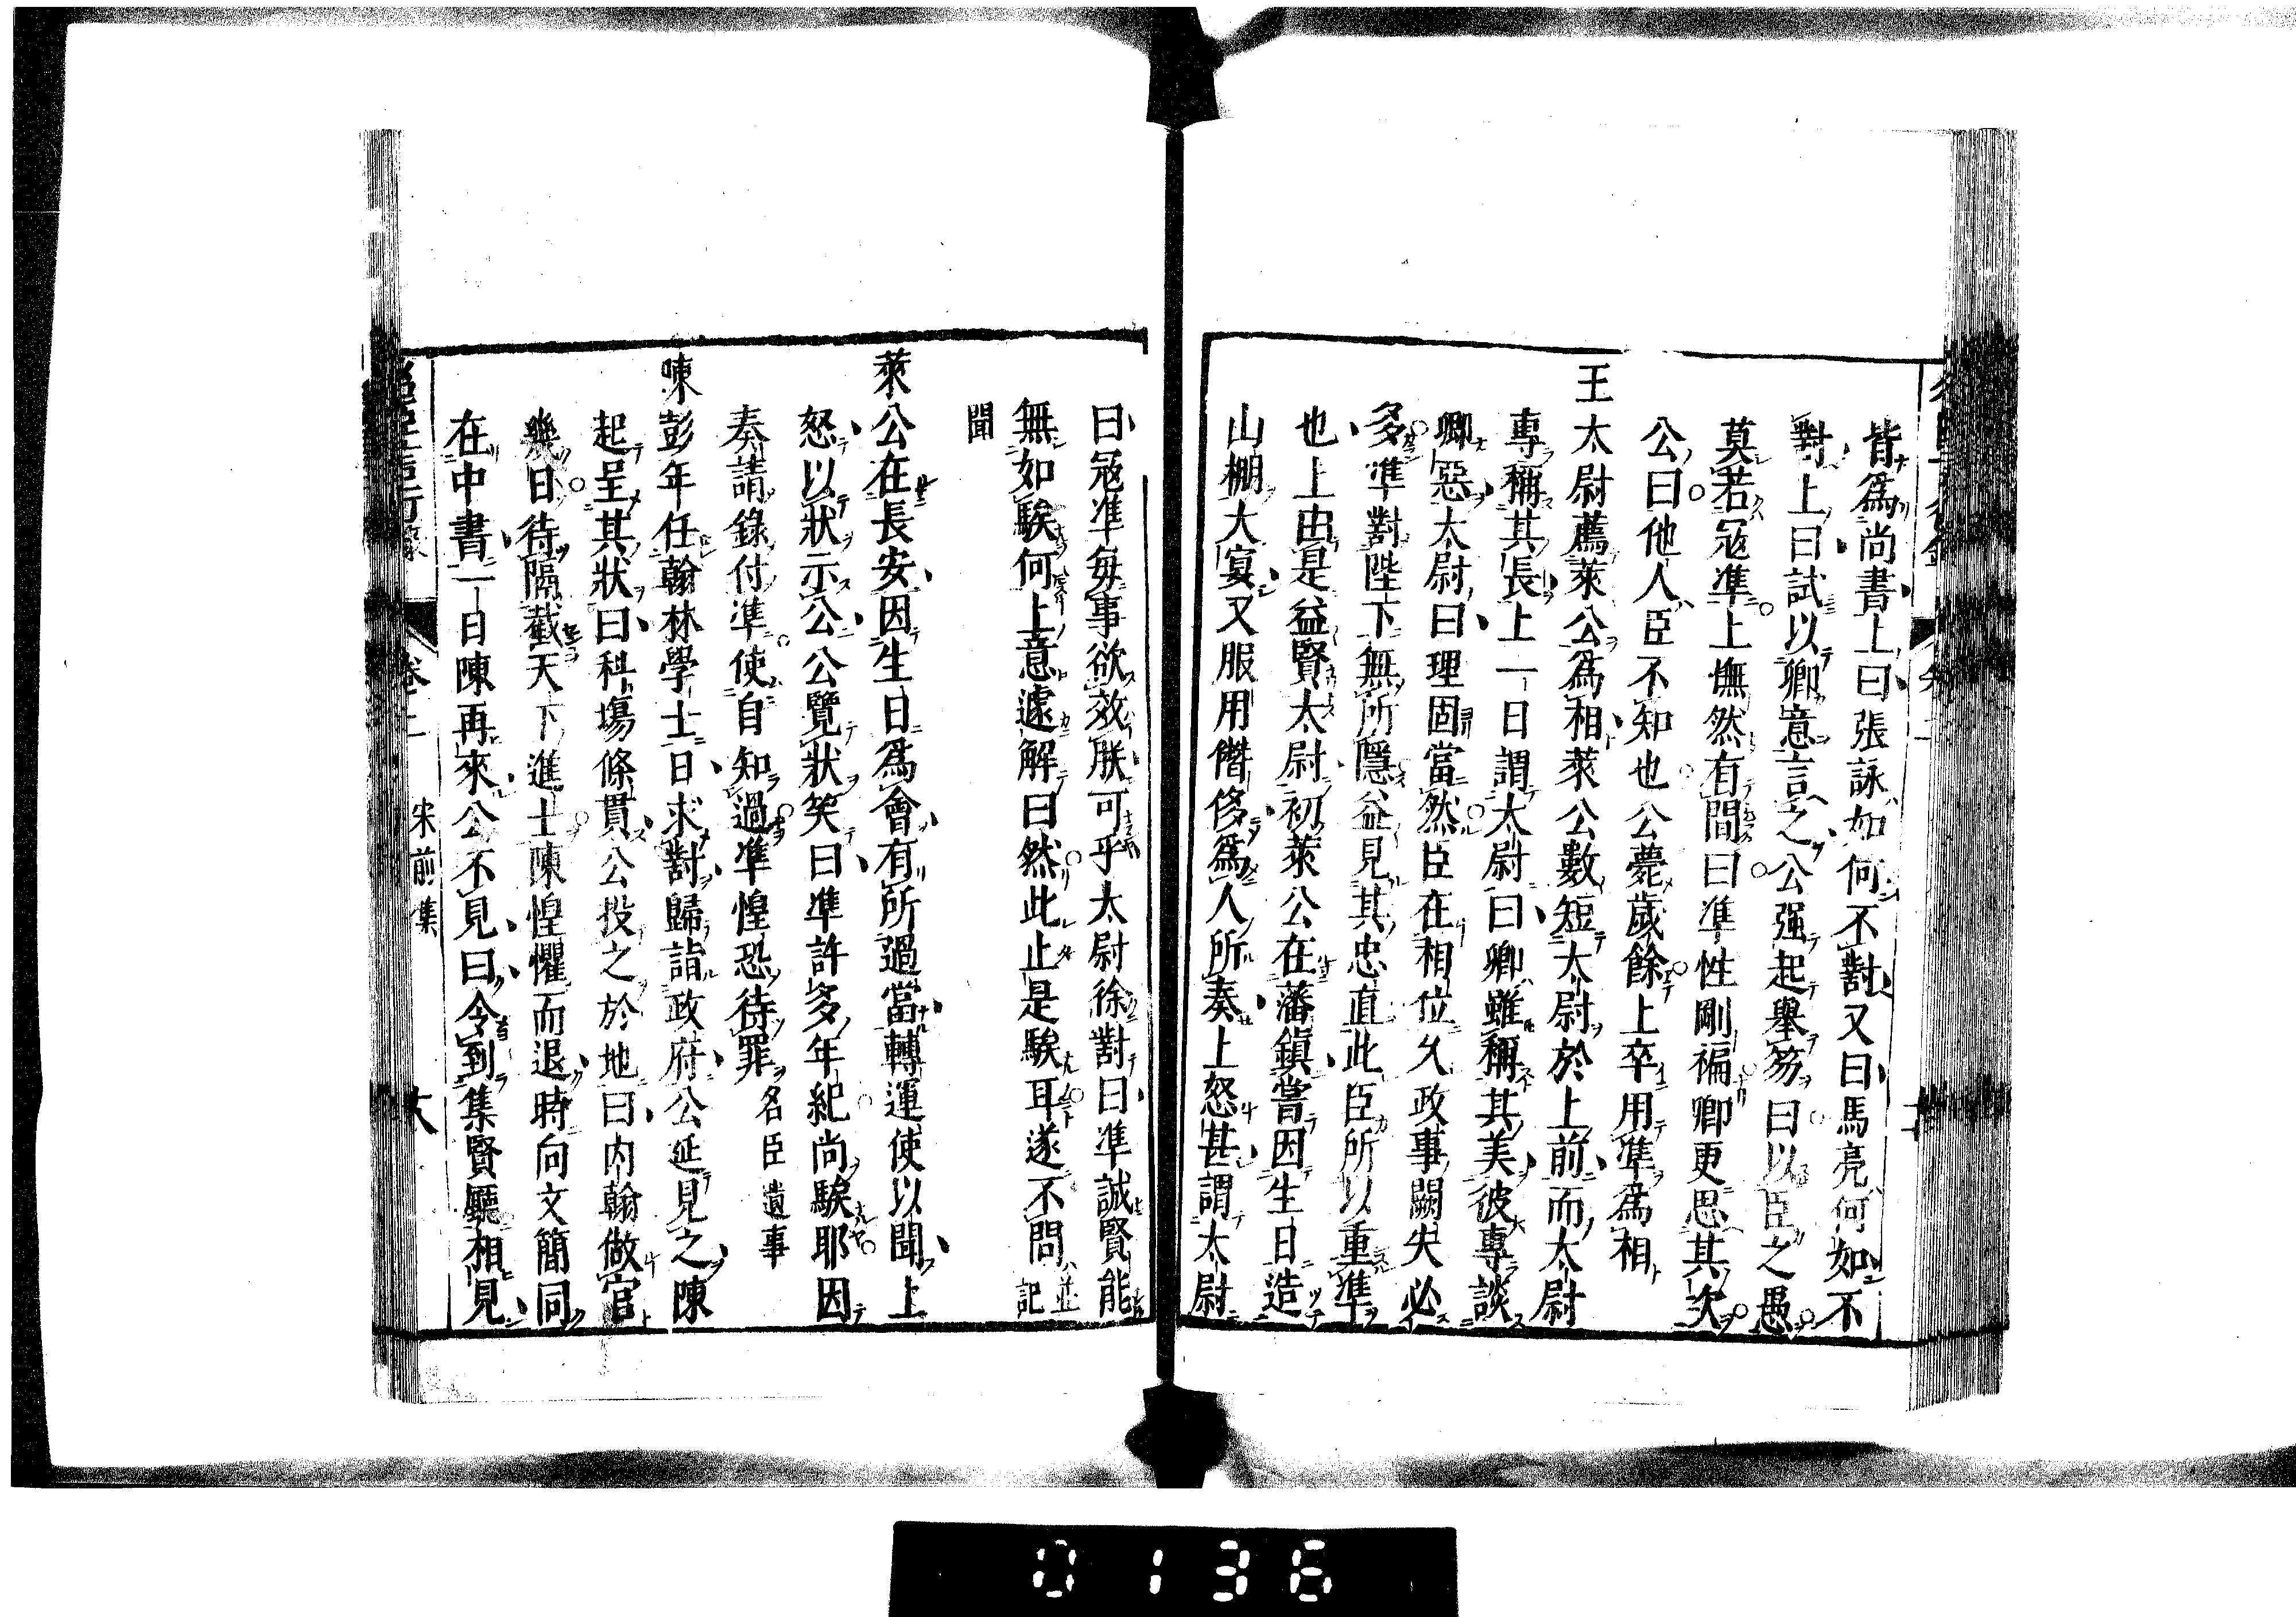 皆爲尚書上曰張詠如何不對又曰馬亮何如不
對上曰試以卿意言之公强起舉笏曰以臣之愚
莫若冦準上憮然有間曰準性剛褊卿更思其次
公曰他人臣不知也公薨歲餘上卒用準爲相
王太尉薦萊公爲相萊公數短太尉於上前而太尉
專稱其長上一日謂太尉曰卿雖稱其美彼專談
卿惡太尉曰理固當然臣在相位久政事闕失必
多準對陛下無所隱益見其忠直此臣所以重準
也上由是益賢太尉初萊公在藩鎭嘗因生日造
山棚大宴又服用僭侈爲人所奏上怒甚謂太尉
曰冦準每事欲效朕可乎太尉徐對曰準誠賢能
無如騃何上意遽解曰然此止是騃耳遂不問並記
聞
萊公在長安因生日爲會有所過當轉運使以聞上
怒以狀示公公覽狀笑曰準許多年紀尚騃耶因
奏請錄付準使自知過準惶恐待罪名臣遺事
陳彭年任翰林學士日求對歸詣政府公延見之陳
起呈其狀曰科塲條貫公投之於地曰内翰做官
幾日待隔截天下進士陳惶懼而退時向文簡同
在中書一日陳再來公不見曰令到集賢廳相見
卷二 宋前集 六
0136